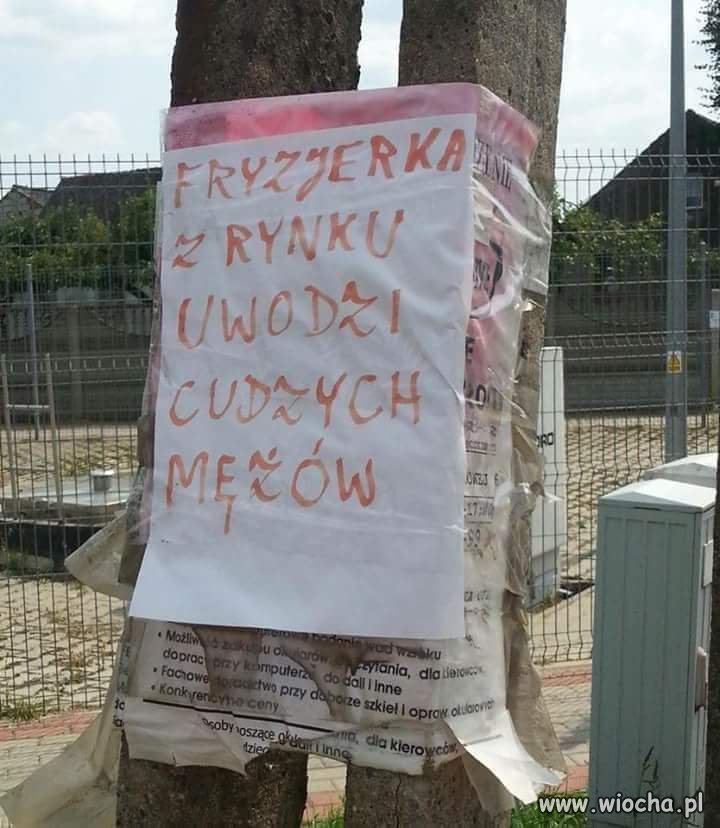 FRYZJERKA
Z RYNKU
UWODZI
CUDZYCH
MĘŻÓW
komputerowe badanie wad wzroku
• Możliwość zakupu okularów do czytania, dla kierowców,
do pracy przy komputerze, do dali i inne
• Fachowe doradztwo przy doborze szkieł i opraw okularowych
• Konkurencyjne ceny
Osoby noszące dla kierowców,
do dali i inne
www.wiocha.pl